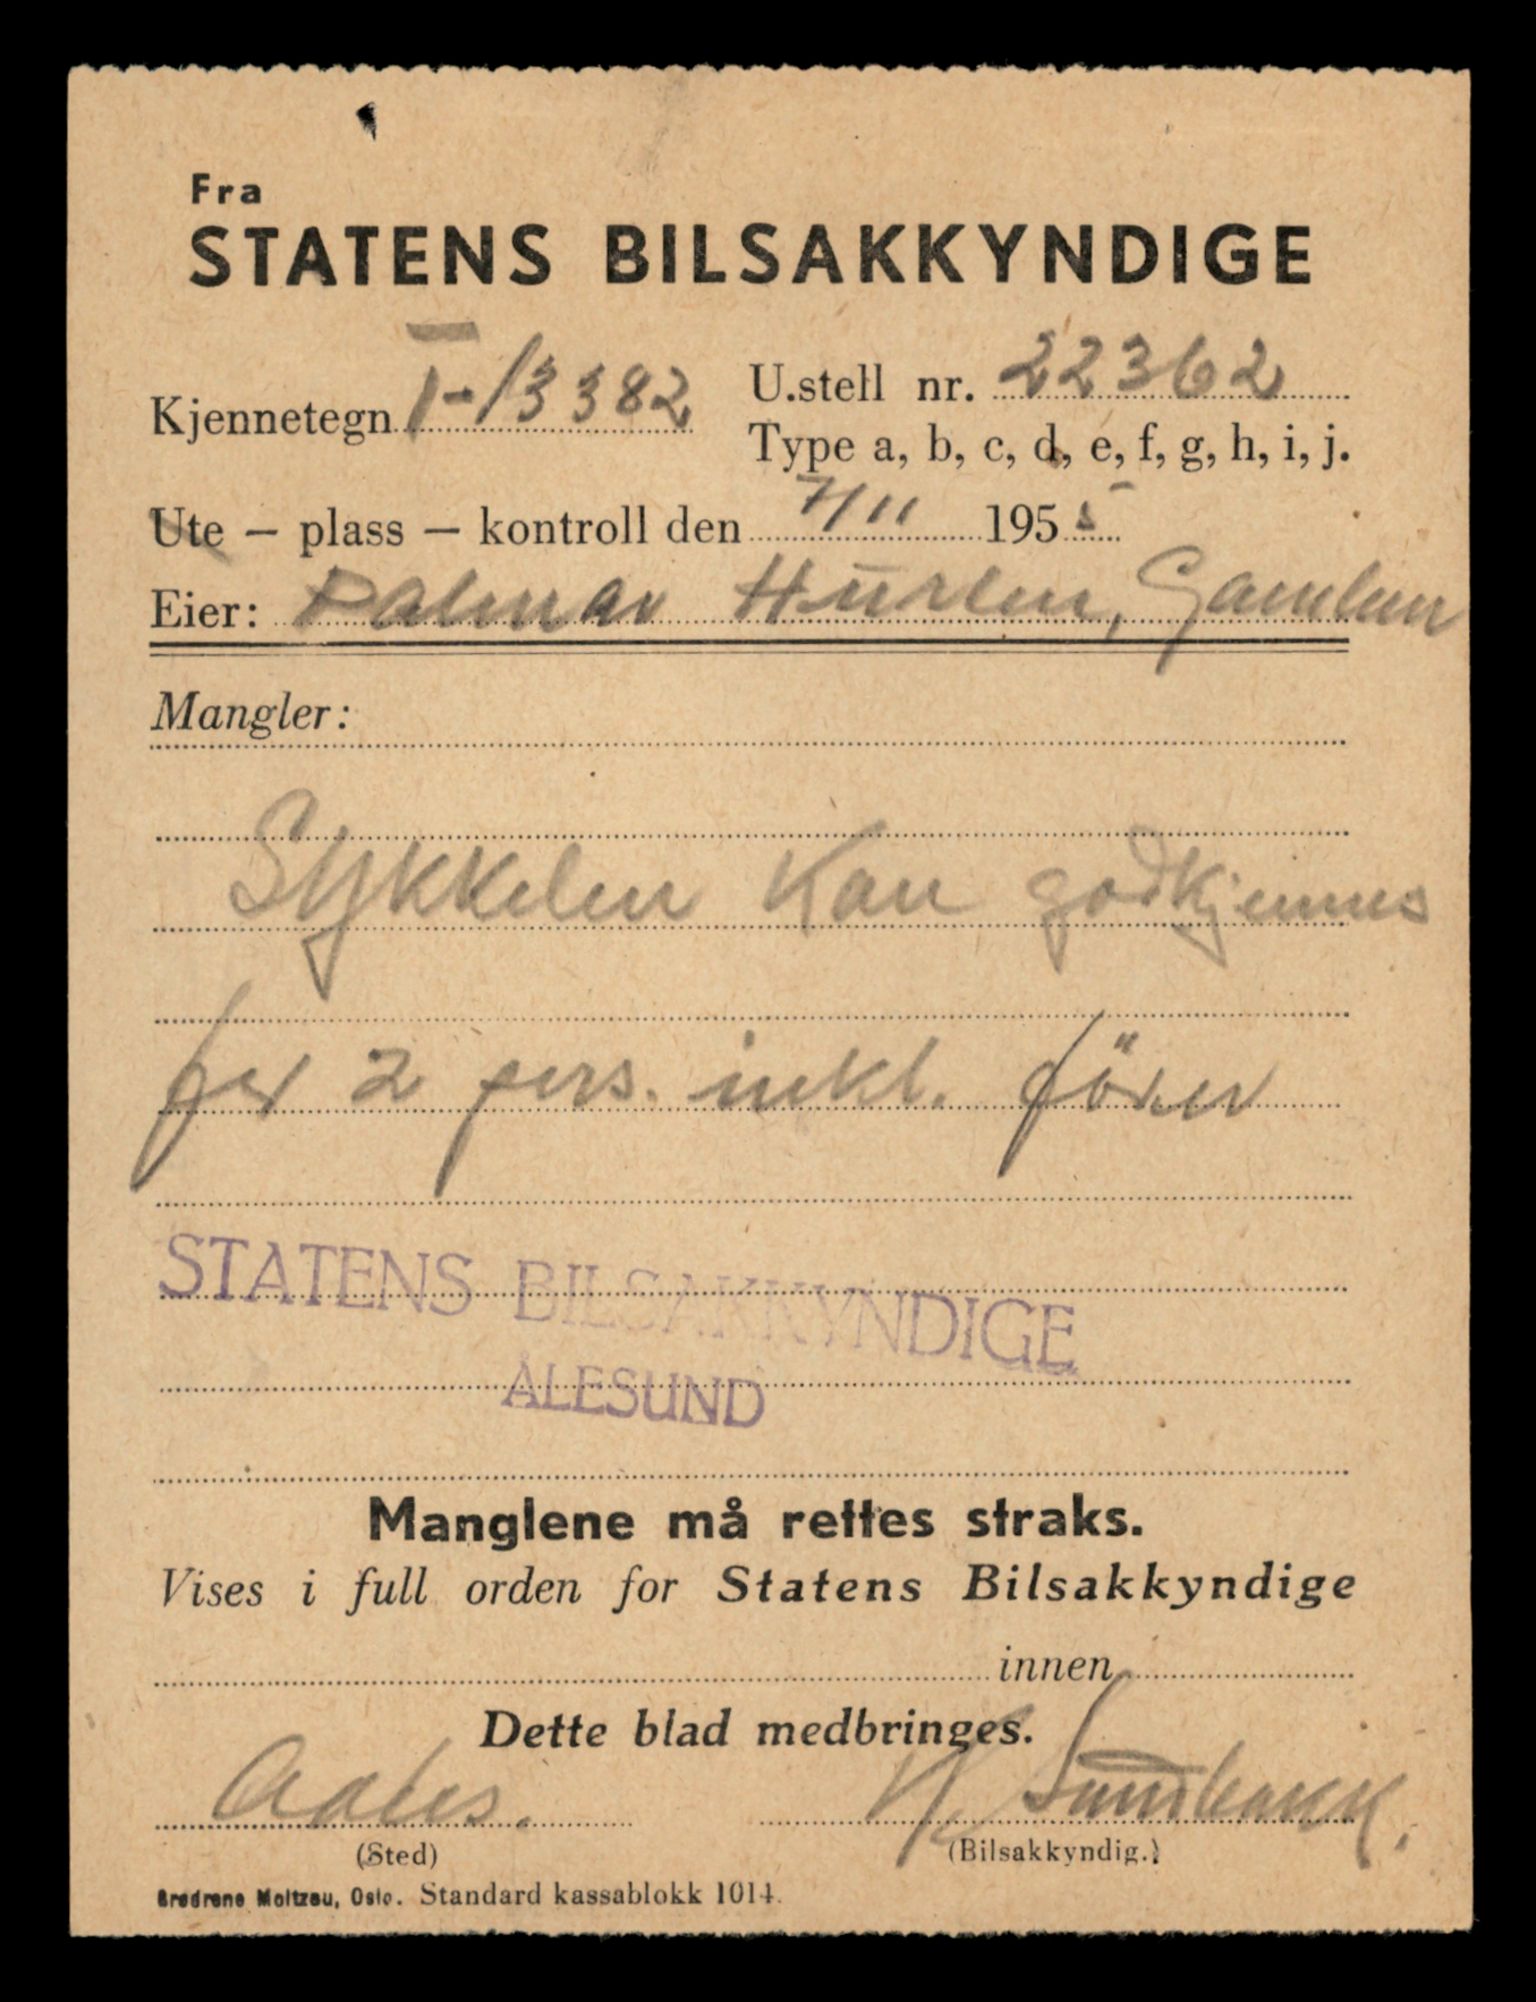 Fra
STATENS BILSAKKYNDIGE
Kjennetegn T-13382
U.stell nr. 22362
Type a, b, c, d, e, f, g, h, i, j.
Ute – plass – kontroll den 7/11 1955
Eier: Palmar
Mangler:
Sykkelen kan godkjennes
for 2 pers. inkl. förer
STATENS BILSAKKYNDIGE
ÅLESUND
Manglene må rettes straks.
Vises i full orden for Statens Bilsakkyndige
innen
Dette blad medbringes.
Aales. K. Sundbakk.
(Sted) (Bilsakkyndig.)
Brødrene Moltzau, Oslo. Standard kassablokk 1014.